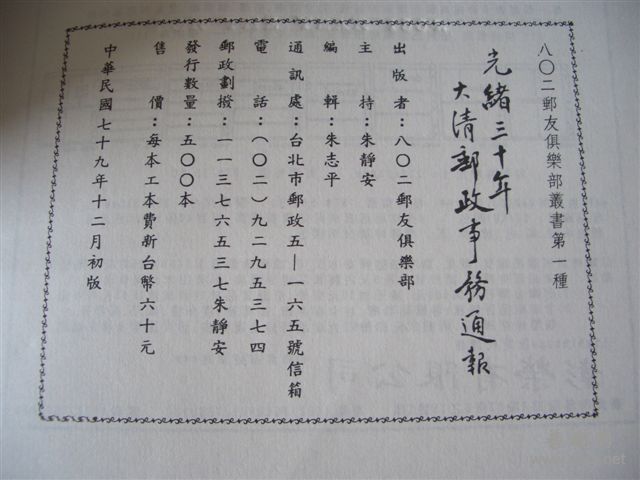 八〇二郵友俱樂部叢書第一種
光緒三十年
大清郵政事務通報
出版者：八〇二郵友俱樂部
主持：朱靜安
編輯：朱志平
通訊處：台北市郵政五—一六五號信箱
電話：（〇二）九二九五三七四
郵政劃撥：一一三七六五三七朱靜安
發行數量：五〇〇本
售價：每本工本費新台幣六十元
中華民國七十九年十二月初版